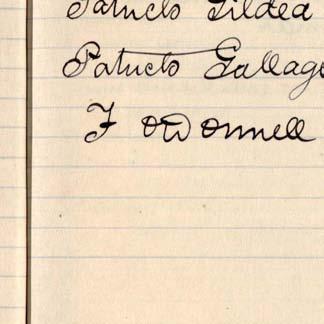 Patrick Gildea
Patrick Gallag
F O'Donnell